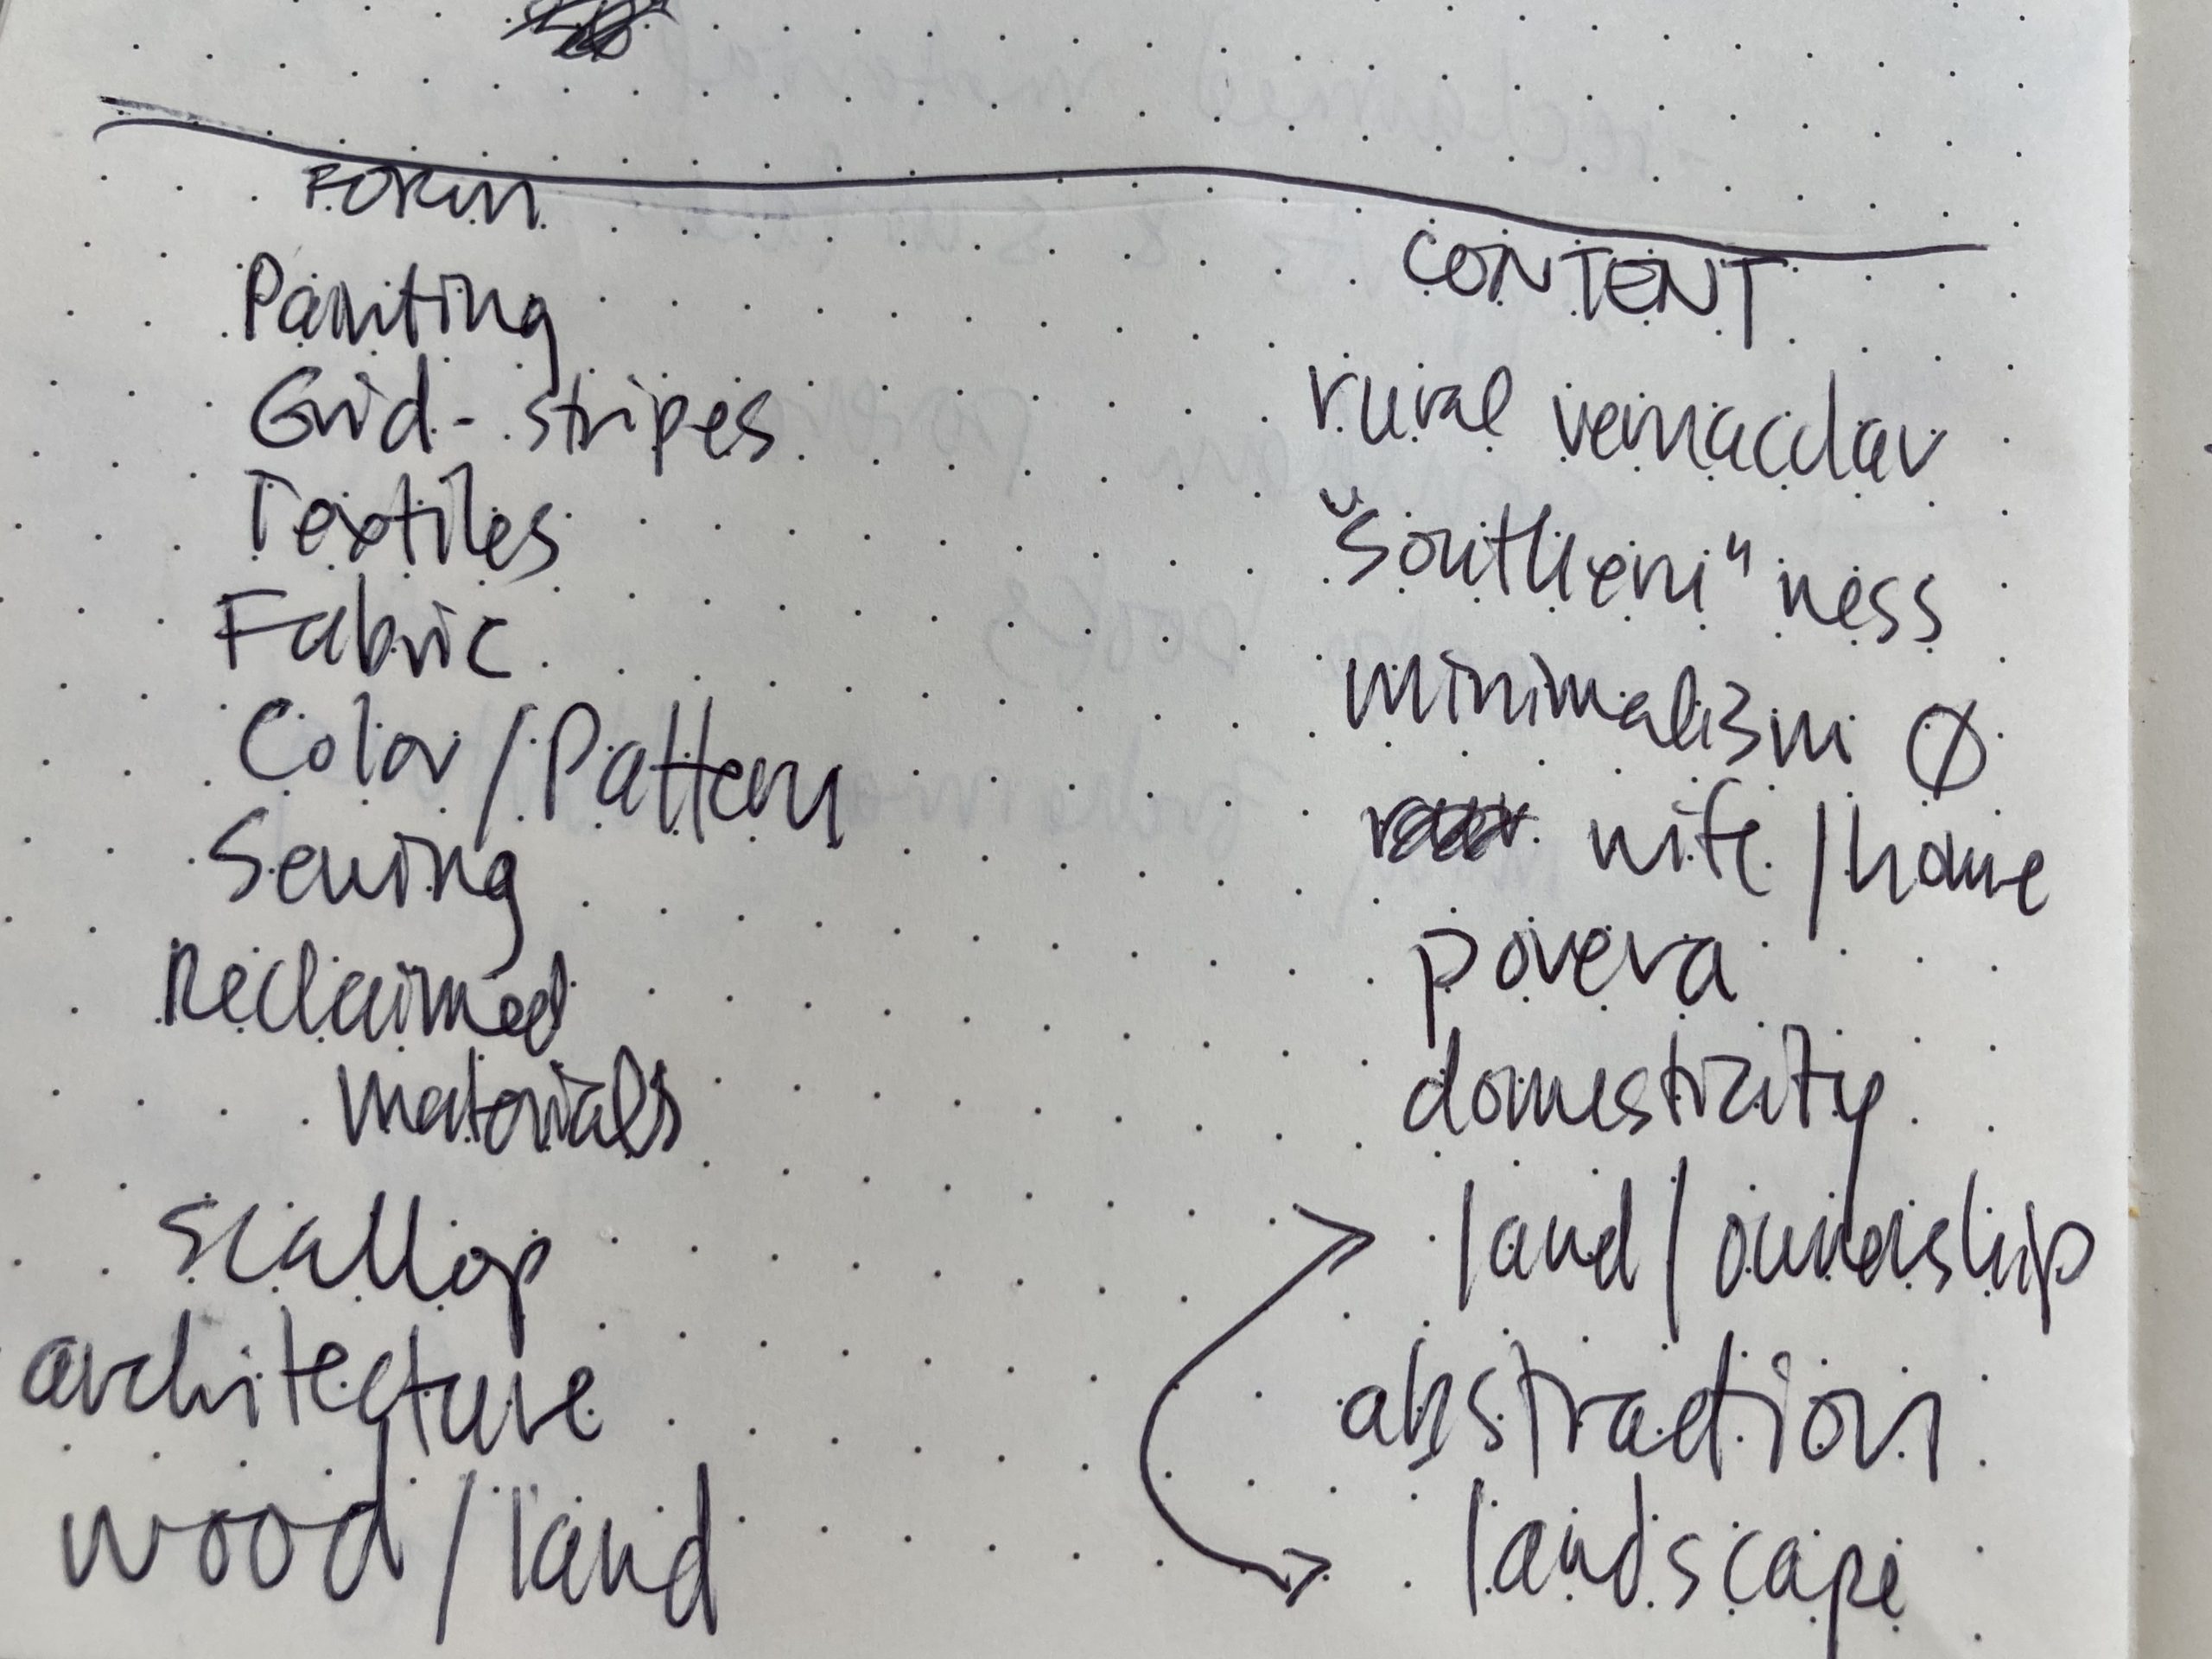 FORM
Painting
Grid - stripes
Textiles
Fabric
Color / Pattern
Sewing
Reclaimed
materials
scallop
architecture
wood / land
CONTENT
rural vernacular
"Southern" ness
minimalism Ø
wife / home
povera
domesticity
land / ownership
abstraction
landscape